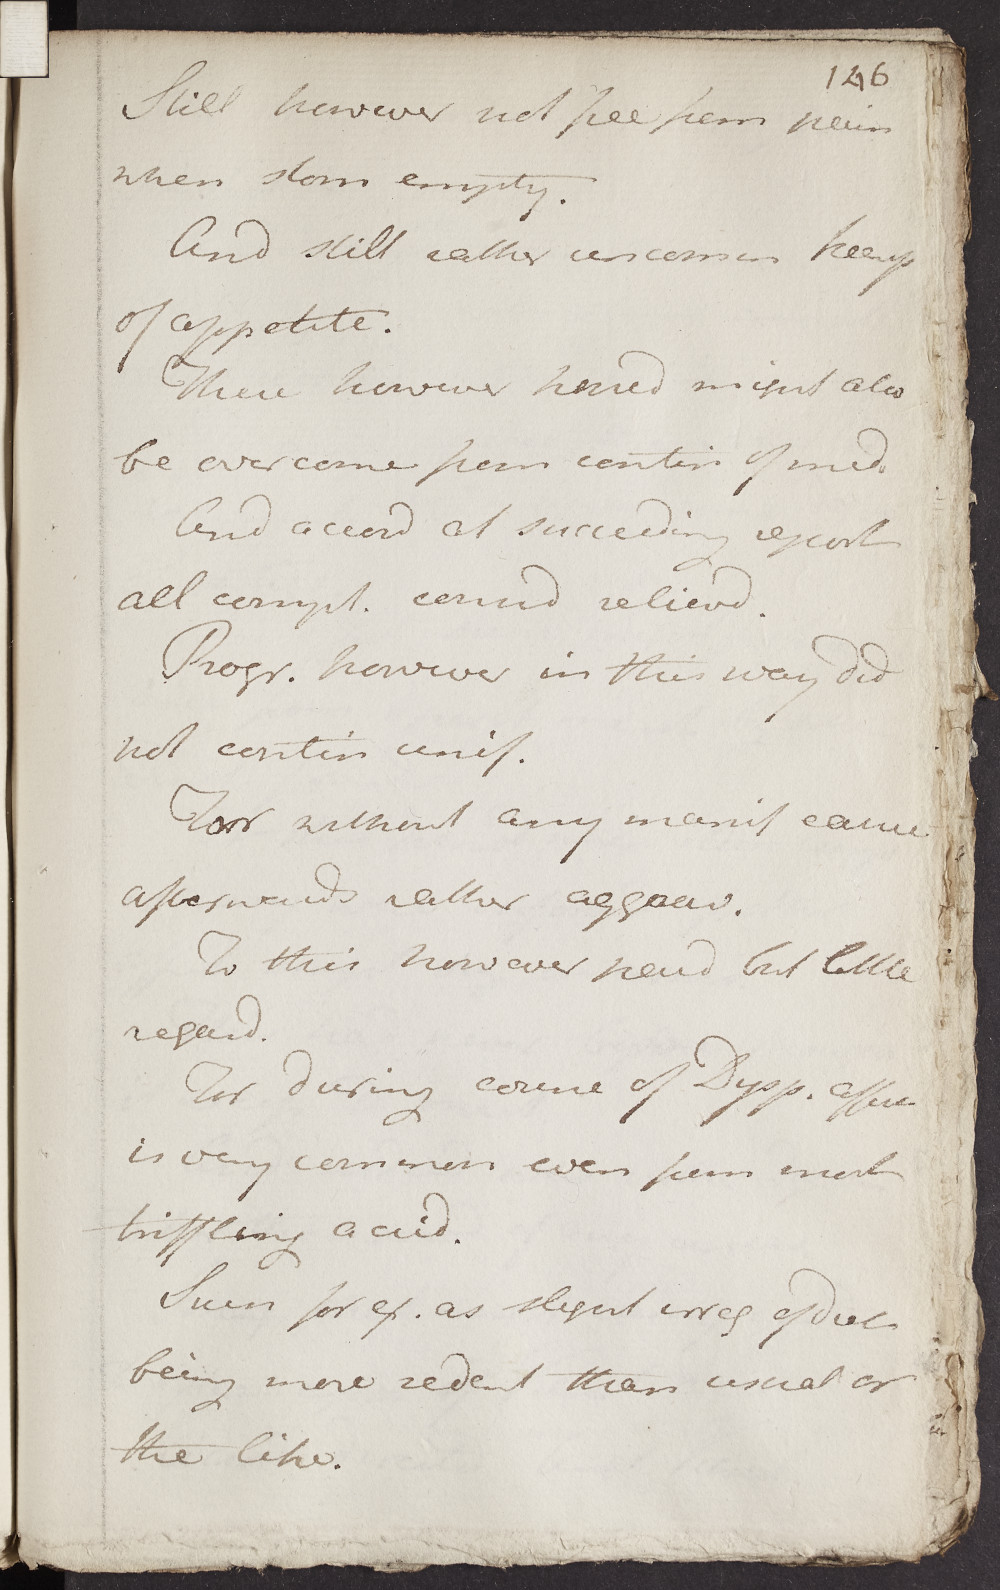 146
Still however not free from pain
when stom empty.
And still rather uncommon keenness
of appetite.
These however hoped might also
be overcome from contin of med.
And accord at succeeding report
all compl. considd relievd.
Progr. however in this way did
not contin unif.
For without any manif cause
afterwards rather aggrav.
To this however paid but little
regard.
For during course of Dysp. affec
is very common even from most
triffling accid.
Such for ex. as slight irreg of diet
being more sedent than usual or
the like.